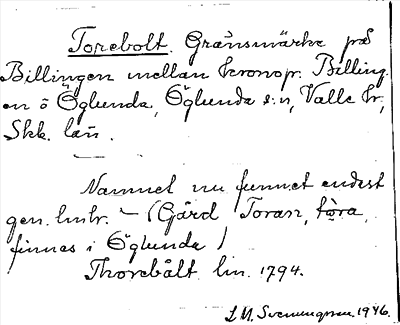 Torebolt. Gränsmärke på
Billingen mellan kronopr. Billing
en o Öglunda, Öglunda s:n, Valle hr,
Skb. län.
Namnet nu funnet endast
gen. lmtr. – (Gård Toran, tòra,
finnes i Öglunda)
Thorebålt lm. 1794.
L M. Svenungson. 1946.